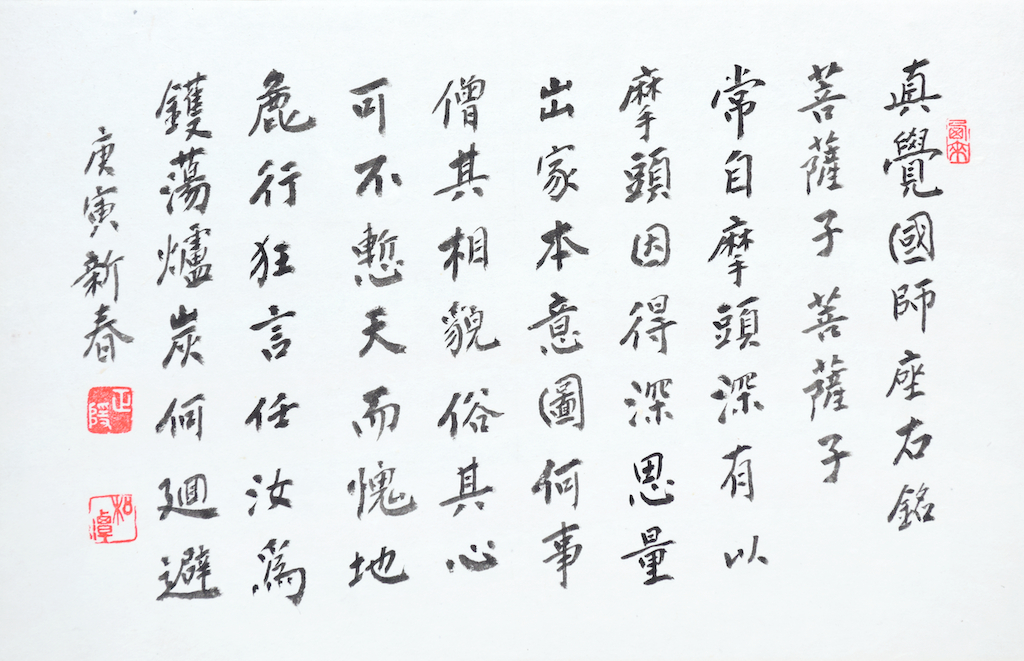 真覺國師座右銘
菩薩子菩薩子
常自摩頭深有以
摩頭因得深思量
出家本意圖何事
僧其相貌俗其心
可不慙天而愧地
麁行狂言任汝爲
鑊蕩爐炭何廻避
庚寅新春